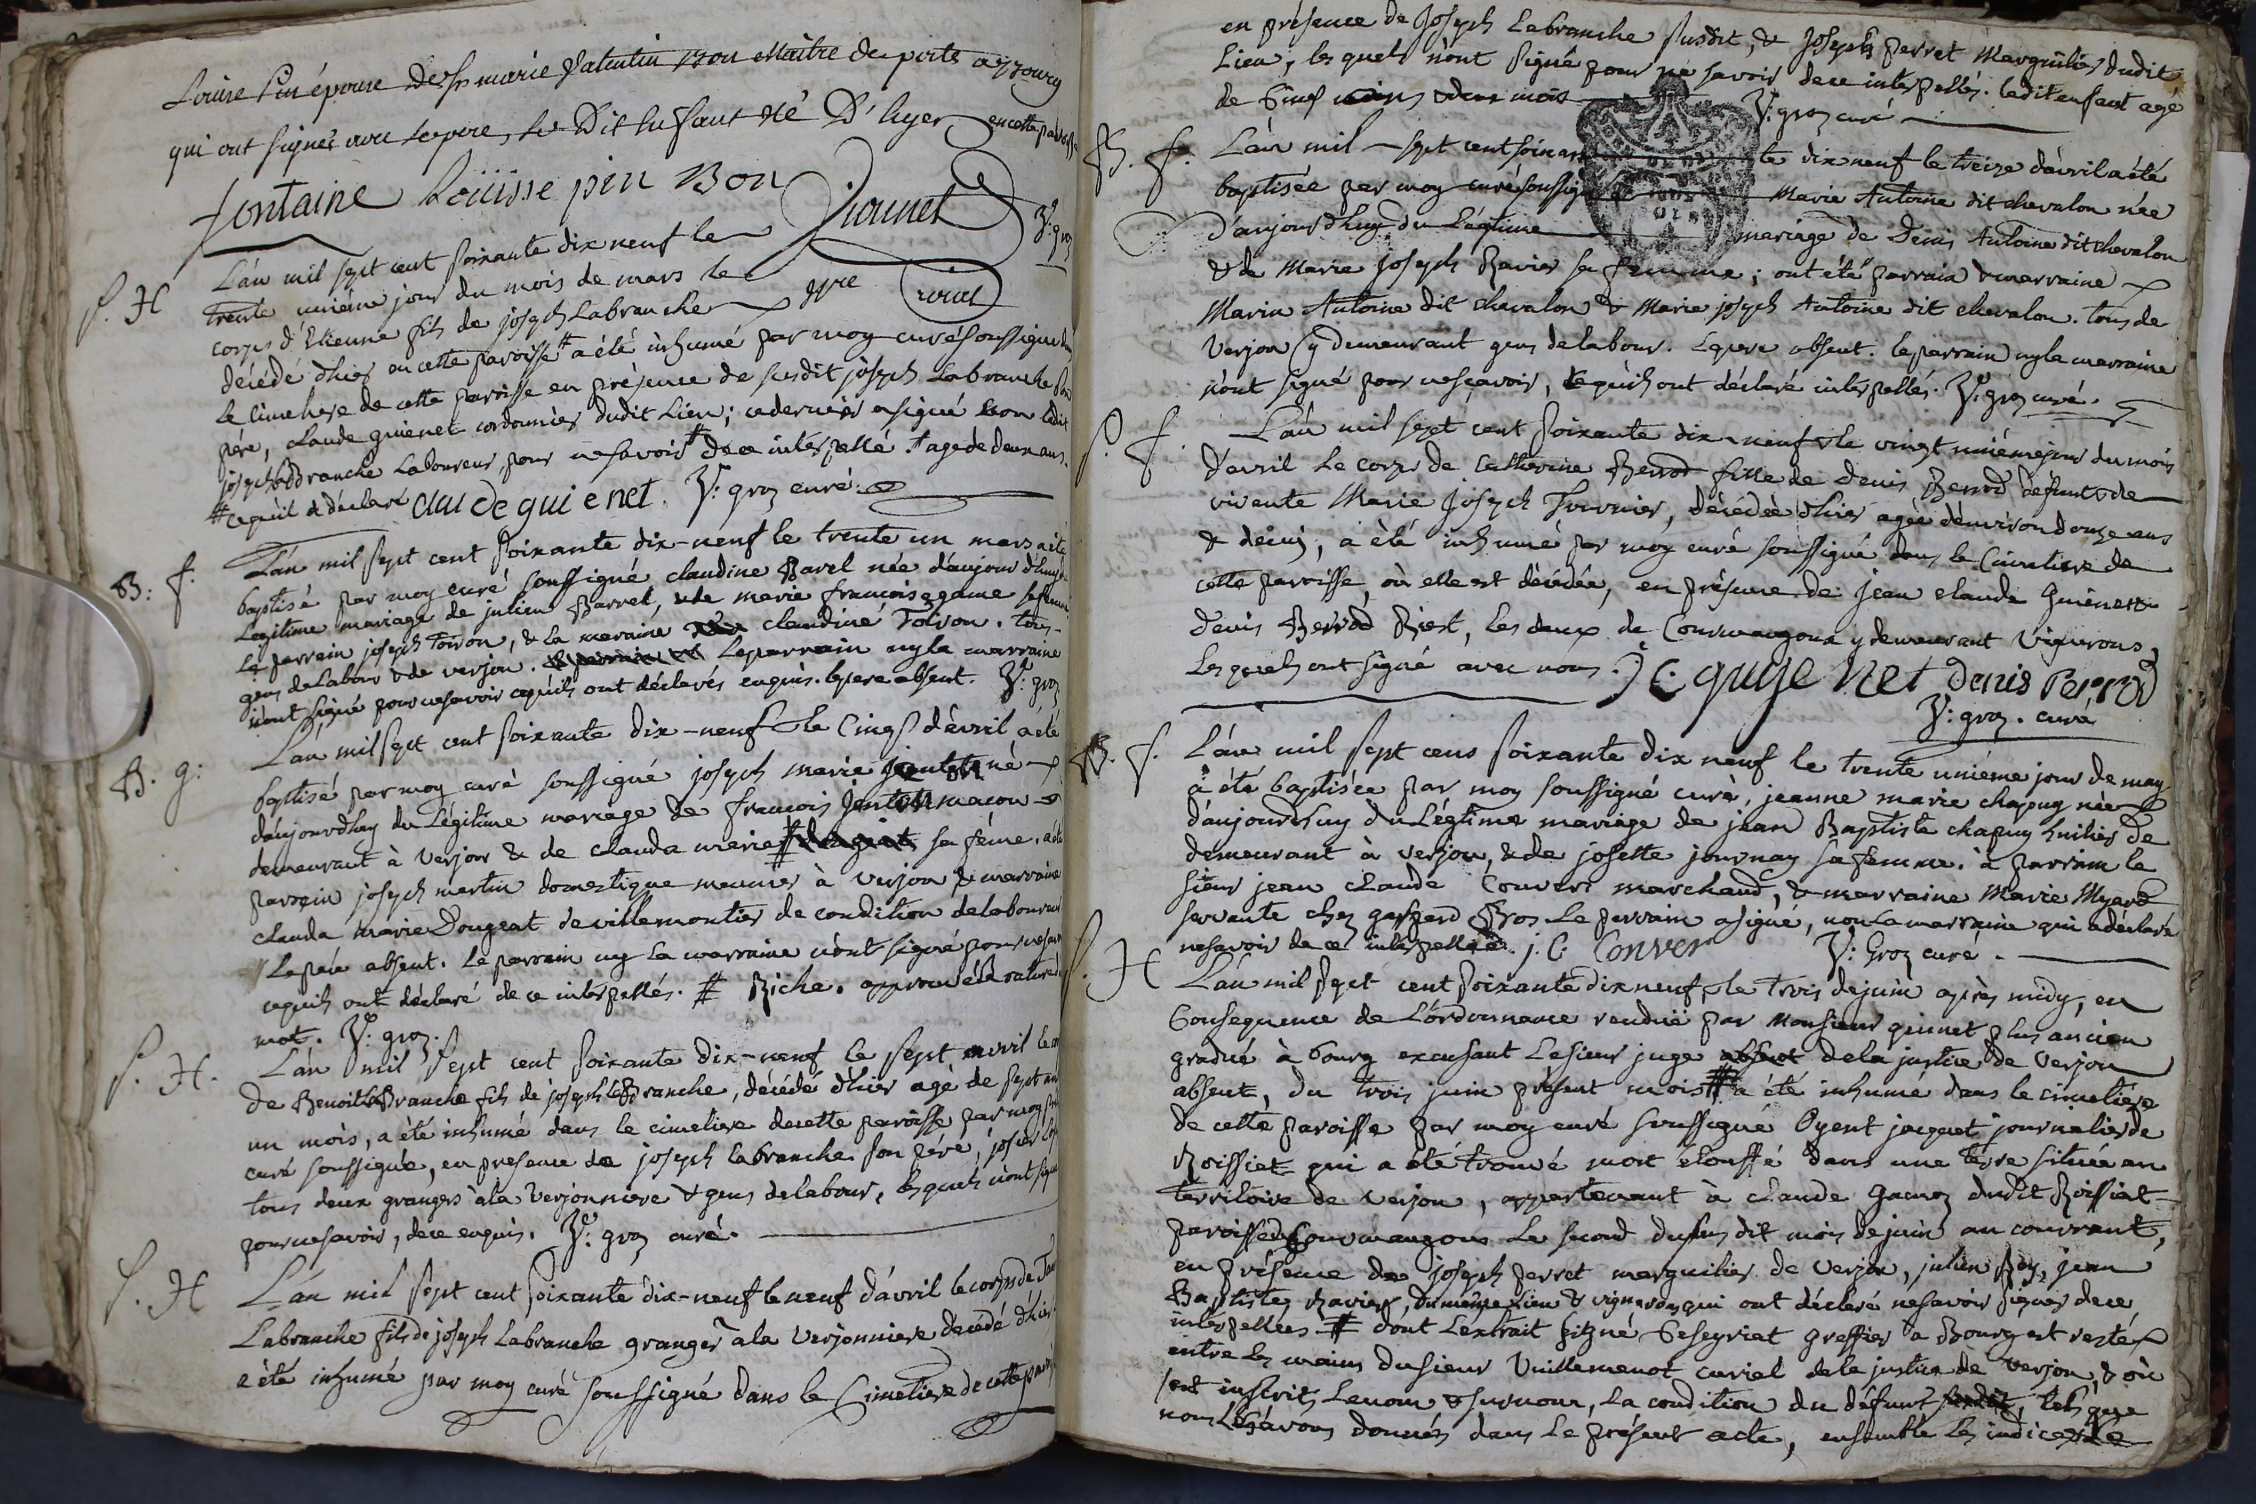 Louise Pin épouse de Sr marie Valentin Bon Maître de poste a Bourg
qui ont signés avec le pere, le Dit Enfant né D'hyer en cette paroisse
fontaine Loüisse pin Bon
V: groz
S. H L'an mil sept cent soixante dix neuf le
trente unième jour du mois de mars le
corps d'Etienne fils de joseph Labranche
décédé d'hier en cette paroisse # a été inhumé par moy curé soussigné dans
le cimetiere de cette paroisse en présence de susdit joseph Labranche son
père, claude guienet cordonnier dudit Lieu; ce dernier a signé non ledit
joseph Labranche Laboureur, pour ne savoir # de ce interpellé. + agé de deux ans.
# ce qu'il a déclaré claude guienet. V: groz curé.
B: f. L'an mil sept cent soixante dix-neuf le trente un mars a été
baptisé par moy curé soussigné claudine Bavel née d'aujourd'huy du
Legitime mariage de julien Barvel, & de marie françoise game sa femme
Le parrein joseph Toison, & la maraine claudine Toison. tous
gens de Labour & de verjon. Le parrain ny la marraine
n'ont signé pour ne savoir ce qu'ils ont déclarés enquis. le pere absent. V: groz
B. g: L'an mil sept cent soixante dix-neuf & le Cinq d'avril a été
baptisé par moy curé soussigné joseph marie né
d'aujourd'huy du Légitime mariage de francois macon
demeurant à Verjon & de claudа marie # sa féme. a été
parrein joseph martin domestique meunier à Verjon & marraine
clauda Marie Dougeat de villemontier de condition de laboureur
Le père absent. Le parrein ny La marraine n'ont signé pour ne savoir
ce qu'ils ont déclaré de ce interpellés. # Riche. approuvé la rature du
mot. V: groz.
S. H. L'an mil sept cent soixante dix-neuf le sept avril le corps
de Benoit LaBranche fils de joseph LaBranche, décédé d'hier agé de sept ans
un mois, a été inhumé dans le cimetiere de cette paroisse par moy
curé soussigné, en presence de joseph labranche son père,
tous deux grangers à la Verjonniere & gens de labour, lesquels n'ont signé
pour ne savoir, de ce enquis. V: groz curé.
S. H L'an mil sept cent soixante dix-neuf le neuf d'avril le corps de
Labranche fils de joseph Labranche granger à la Verjonniere décédé d'hier
a été inhumé par moy curé soussigné dans le Cimetiere de cette paroisse
en présence de Joseph Labranche susdit, & Joseph perret Marguillier dudit
Lieu, les quels n'ont signé pour ne savoir de ce interpellés. ledit enfant agé
de & deux mois V: groz curé
B. f. L'an mil sept cent soixante dix neuf le treize d'avril a été
baptisée par moy curé soussigné Marie Antoine dit chevalon née
D'aujourd'huy du Légitime mariage de Denis Antoine dit chevalon
& de Marie Joseph Ravier sa femme; ont été parrain & marraine
Marin Antoine dit chevalon & Marie joseph Antoine dit chevalon. tous de
Verjon y demeurant gens de labour. Le pere absent. le parrain ny la marraine
n'ont signé pour ne sçavoir, ce qu'ils ont déclaré interpellés. V: groz curé.
S. f. L'an mil sept cent soixante dix neuf & le vingt unième jour du mois
d'avril le corps de Catherine Berrod fille de Denis Berrod défunt & de
vivente Marie Joseph Fournier, décédée d'hier agée d'environ douze ans
& demis, a été inhumé par moy curé soussigné dans le Cimetiere de
cette paroisse, où elle est décédée, en présence de Jean claude Guienet &
Denis Berrod Biest, les deux de Courmangoux y demeurant Vignerons,
Lesquels ont signé avec nous. J C: guyenet Denis Berrod
V: groz. curé
B. f. L'an mil sept cens soixante dix neuf le trente unième jour de may
a été baptisée par moy soussigné curé, jeanne marie chapuy née
d'aujourd'huy du Légitime mariage de jean Baptiste chapuy huilier de
demeurant à verjon, & de josette journay sa femme. a parrain le
sieur jean claude Convers marchand, & marraine Marie Myard
servante chez gaspard Gros. Le parrain a signé, non la marraine qui a déclaré
ne savoir de ce interpellée. j. C: Conver V: Groz curé.
S. H L'an mil sept cent soixante dix neuf & le trois de juin après midy, en
Consequence de L'ordonnance rendüe par Monsieur guinet plus ancien
gradué à bourg excusant Le sieur juge absent de la justice de Verjon
absent, du trois juin présent mois # a été inhume dans le cimetière
de cette paroisse par moy curé soussigné Oyent jacquet journalier de
Roissiat qui a été trouvé mort étouffé dans une terre située au
territoire de verjon, appartenant à claude Gacroz dudit Roissiat
paroisse Courmangoux le second du susdit mois de juin au courrant,
en présence de joseph perret marguilier de verjon, julien Roy, jean
Baptiste Ravier, du même Lieu & vigneron qui ont déclaré ne savoir signer de ce
interpellées # dont L'extrait signé Geseyriat greffier a Bourg est resté
entre les mains du sieur Vuillemenot curial de la justice de Verjon, & où
sont inscrits Le nom & surnom, La condition du défunt, tels que
nous Les avons donnés dans Le présent acte, ensemble Les indices de